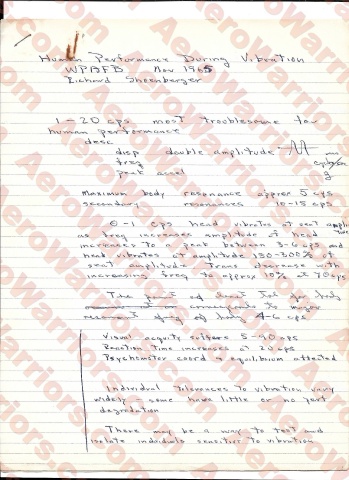 Human Performance During Vibration
WPAFB Nov 1965
Richard Shoenberger
1-20 cps most troublesome for
human performance
desc
disp double amplitude
freq
peak accel g
maximum body resonance approx 5 cps
secondary resonances 10-15 cps
0-1 cps head vibrates at seat amplitude
as freq increases amplitude of head
increases to peak between 3-6 cps and
head vibrates at amplitude 130-300% of
seat amplitude trans decrease with
increasing freq to approx 10% at 70 cps
The point of least tol for body
corresponds to major
resonant freq of body 4-6 cps
Visual acquity suffers 5-90 cps
Reaction time increases at 20 cps
Psychomotor coord + equilibrium affected
Individual tolerances to vibration vary
widely - some have little or no perf
degradation
There may be a way to test and
isolate individuals sensitive to vibration
AeroWarriors.com